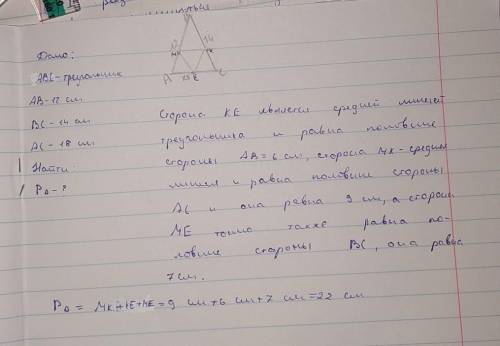 Дано:
ABC-треугольник
AB-12 см.
BC-14 см.
AC-18 см.
Найти
P∆-?
B
12
14
M
K
A
18
E
C
Сторона KE является средней линией
треугольника и равна половине
стороны AB=6 см, сторона MK-средняя
линия и равна половине стороны
AC и она равна 9 см, а сторона
ME точно также равна по-
ловине стороны BC, она равна
7 см.
P∆ = MK+KE+ME=9 см+6 см+7 см=22 см